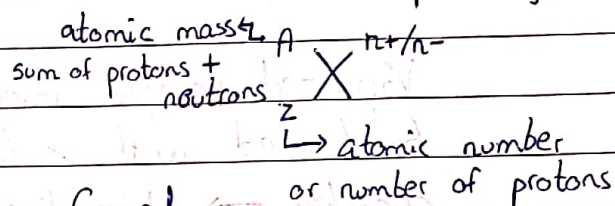 atomic mass A n+/n-
sum of protons +
neutrons X
Z
↳ atomic number
or number of protons